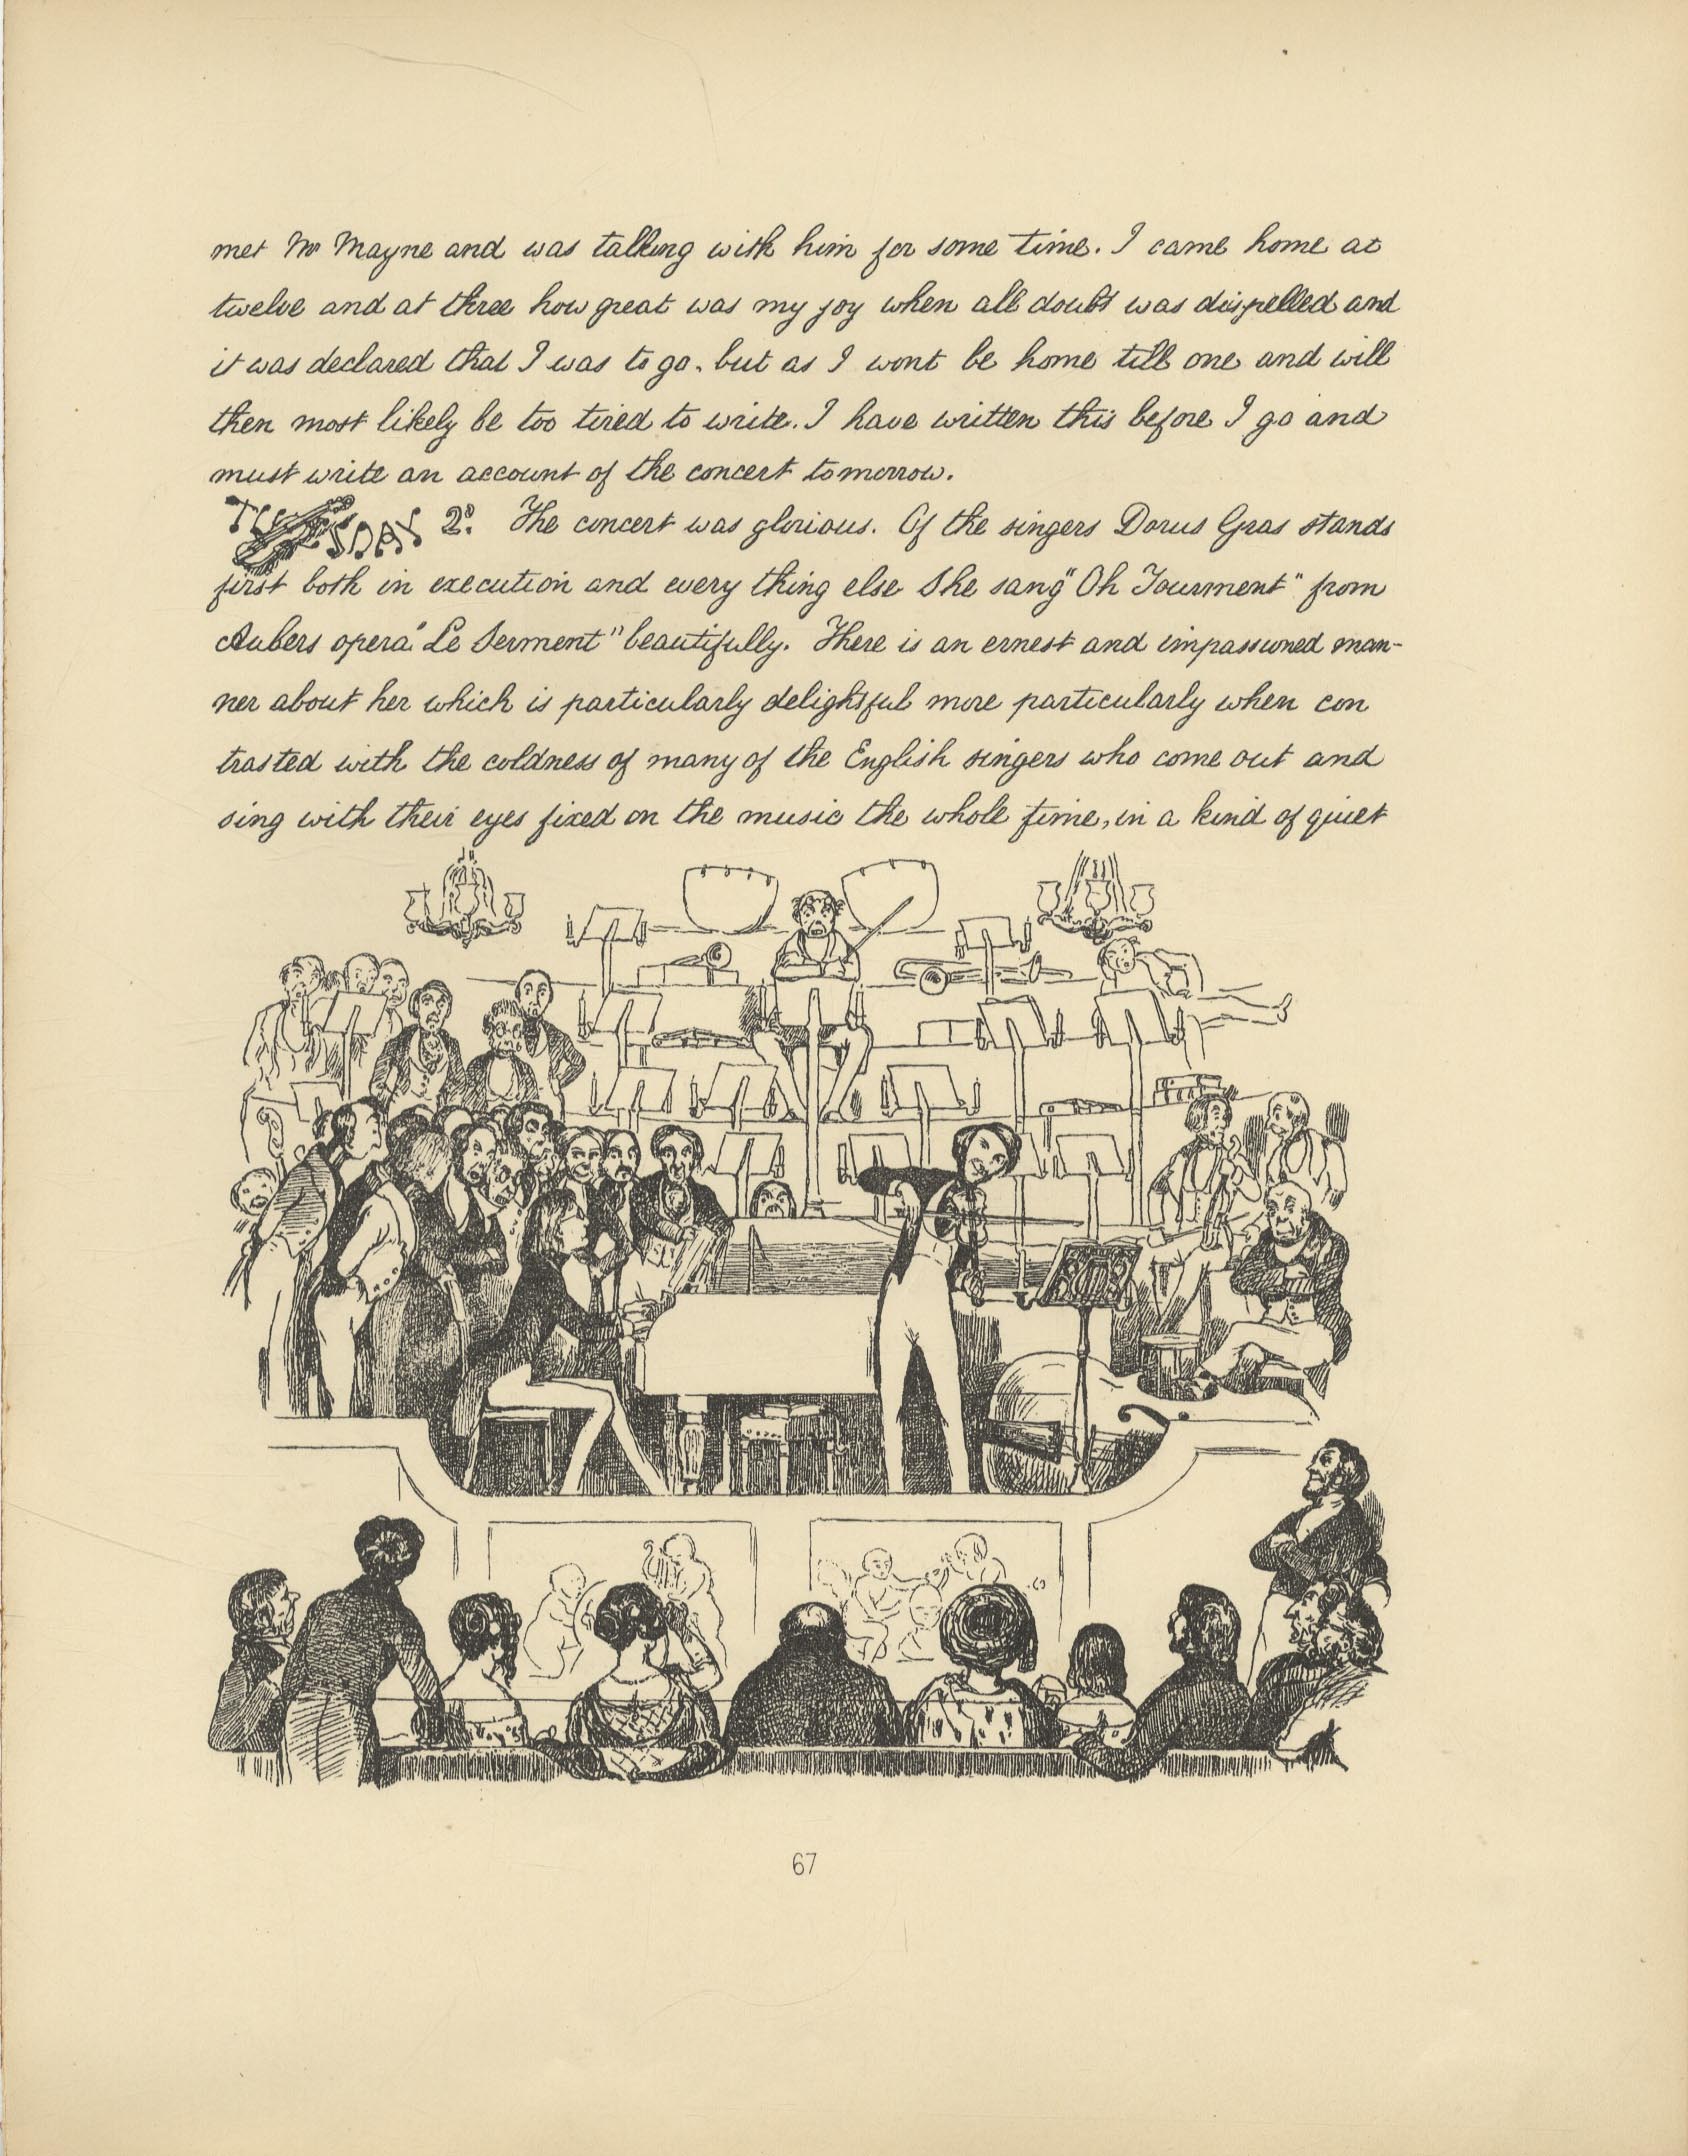 met Mr Mayne and was talking with him for some time. I came home at
twelve and at three how great was my joy when all doubt was dispelled and
it was declared that I was to go. but as I wont be home till one and will
then most likely be too tired to write. I have written this before I go and
must write an account of the concert tomorrow.
TUESDAY 2d. The concert was glorious. Of the singers Dorus Gras stands
first both in execution and every thing else She sang "Oh Tourment" from
Aubers opera "Le Serment" beautifully. There is an ernest and impassioned man-
ner about her which is particularly delightful more particularly when con
trasted with the coldness of many of the English singers who come out and
sing with their eyes fixed on the music the whole time, in a kind of quiet
67